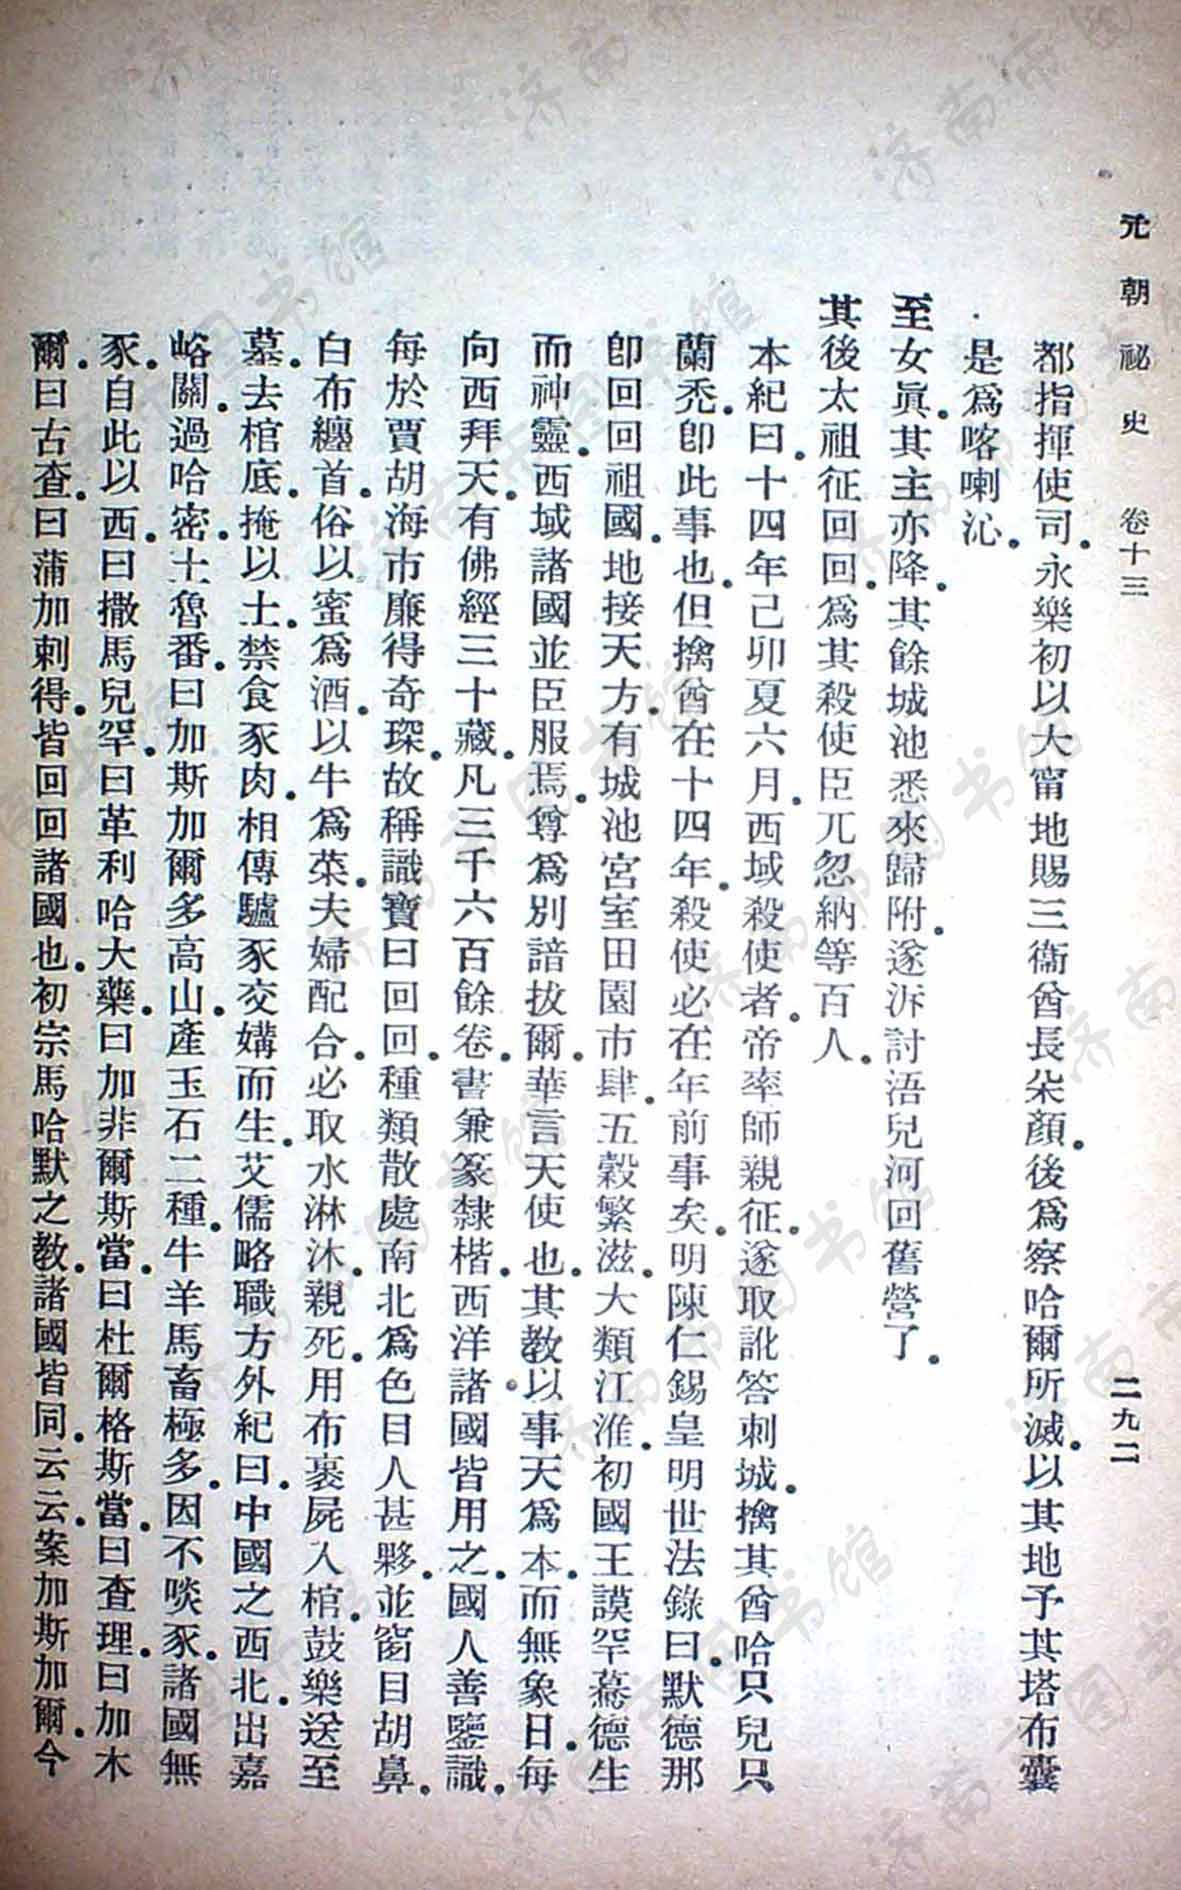 元朝祕史 卷十三 二九二
都指揮使司。永樂初以大甯地賜三衞酋長朵顏。後爲察哈爾所滅。以其地予其塔布囊
是爲喀喇沁。
至女眞。其主亦降。其餘城池悉來歸附。遂泝討浯兒河回舊營了。
其後太祖征回回。爲其殺使臣兀忽納等百人。
本紀曰。十四年己卯夏六月。西域殺使者。帝率師親征。遂取訛答刺城。擒其酋哈只兒只
蘭禿。卽此事也。但擒酋在十四年。殺使必在年前事矣。明陳仁錫皇明世法錄曰。默德那
卽回回祖國。地接天方。有城池宮室田園市肆。五穀繁滋。大類江淮。初國王謨罕驀德生
而神靈。西域諸國並臣服焉。尊爲別諳拔爾。華言天使也。其教以事天爲本。而無象。日每
向西拜天。有佛經三十藏。凡三千六百餘卷。書兼篆隸楷。西洋諸國皆用之。國人善鑒識。
每於賈胡海市廉得奇琛。故稱識寶曰回回。種類散處南北爲色目人甚夥。並窅目胡鼻。
白布纏首。俗以蜜爲酒。以牛爲菜。夫婦配合。必取水淋沐。親死。用布裹屍入棺。鼓樂送至
墓。去棺底。掩以土。禁食豕肉。相傳驢豕交媾而生。艾儒略職方外紀曰。中國之西北。出嘉
峪關。過哈密。土魯番。曰加斯加爾。多高山。產玉石二種。牛羊馬畜極多。因不啖豕。諸國無
豕。自此以西。曰撒馬兒罕。曰革利哈大藥。曰加非爾斯當。曰杜爾格斯當。曰查理。曰加木
爾。曰古查。曰蒲加剌得。皆回回諸國也。初宗馬哈默之教。諸國皆同。云云。案加斯加爾。今